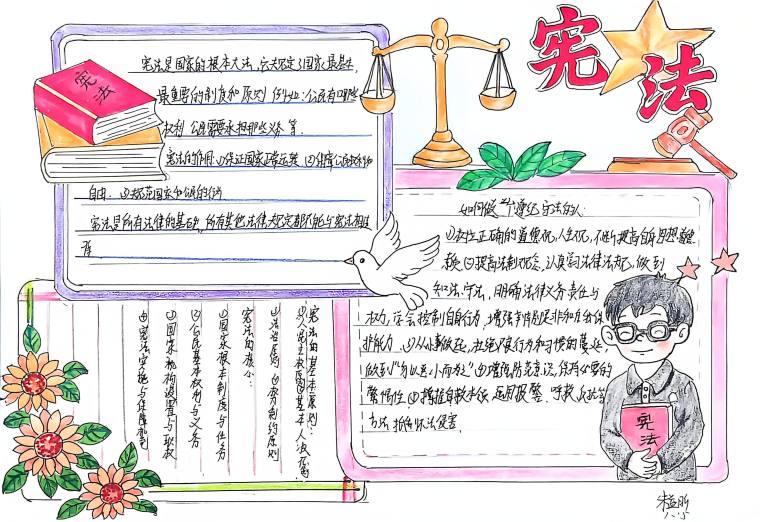 宪法
宪法
宪法是国家的根本大法,它规定了国家最基本,
最重要的制度和原则 例如:公民有哪些
权利 公民需要承担那些义务 等
宪法的作用:①保证国家正常运转 ②保障公民权利和
自由 ③规范国家和公民的行为
宪法是所有法律的基础,所有其他法律规定都不能与宪法相违
背
如何做一个遵纪守法的人:
①树立正确的道德观,人生观,不断提高自身思想道德
素质 ②提高法制观念,认真学习法律法规,做到
知法,守法,明确法律义务责任与
权力,学会控制自身行为,增强辨别是非和自我
非能力 ③从小事做起,杜绝不良行为和习惯的蔓延,
做到"勿以恶小而为之"④增强防范意识,保持必要的
警惕性,⑤掌握自救本领 运用报警 呼救
方法 非法侵害
宪法的基本原则:
①人民主权原则 基本人权原则
②法治原则 ④权力制约原则
宪法的核心:
①国家根本制度与任务
②公民基本权利与义务
③国家机构设置与职权
④宪法实施与保障制度
宪法